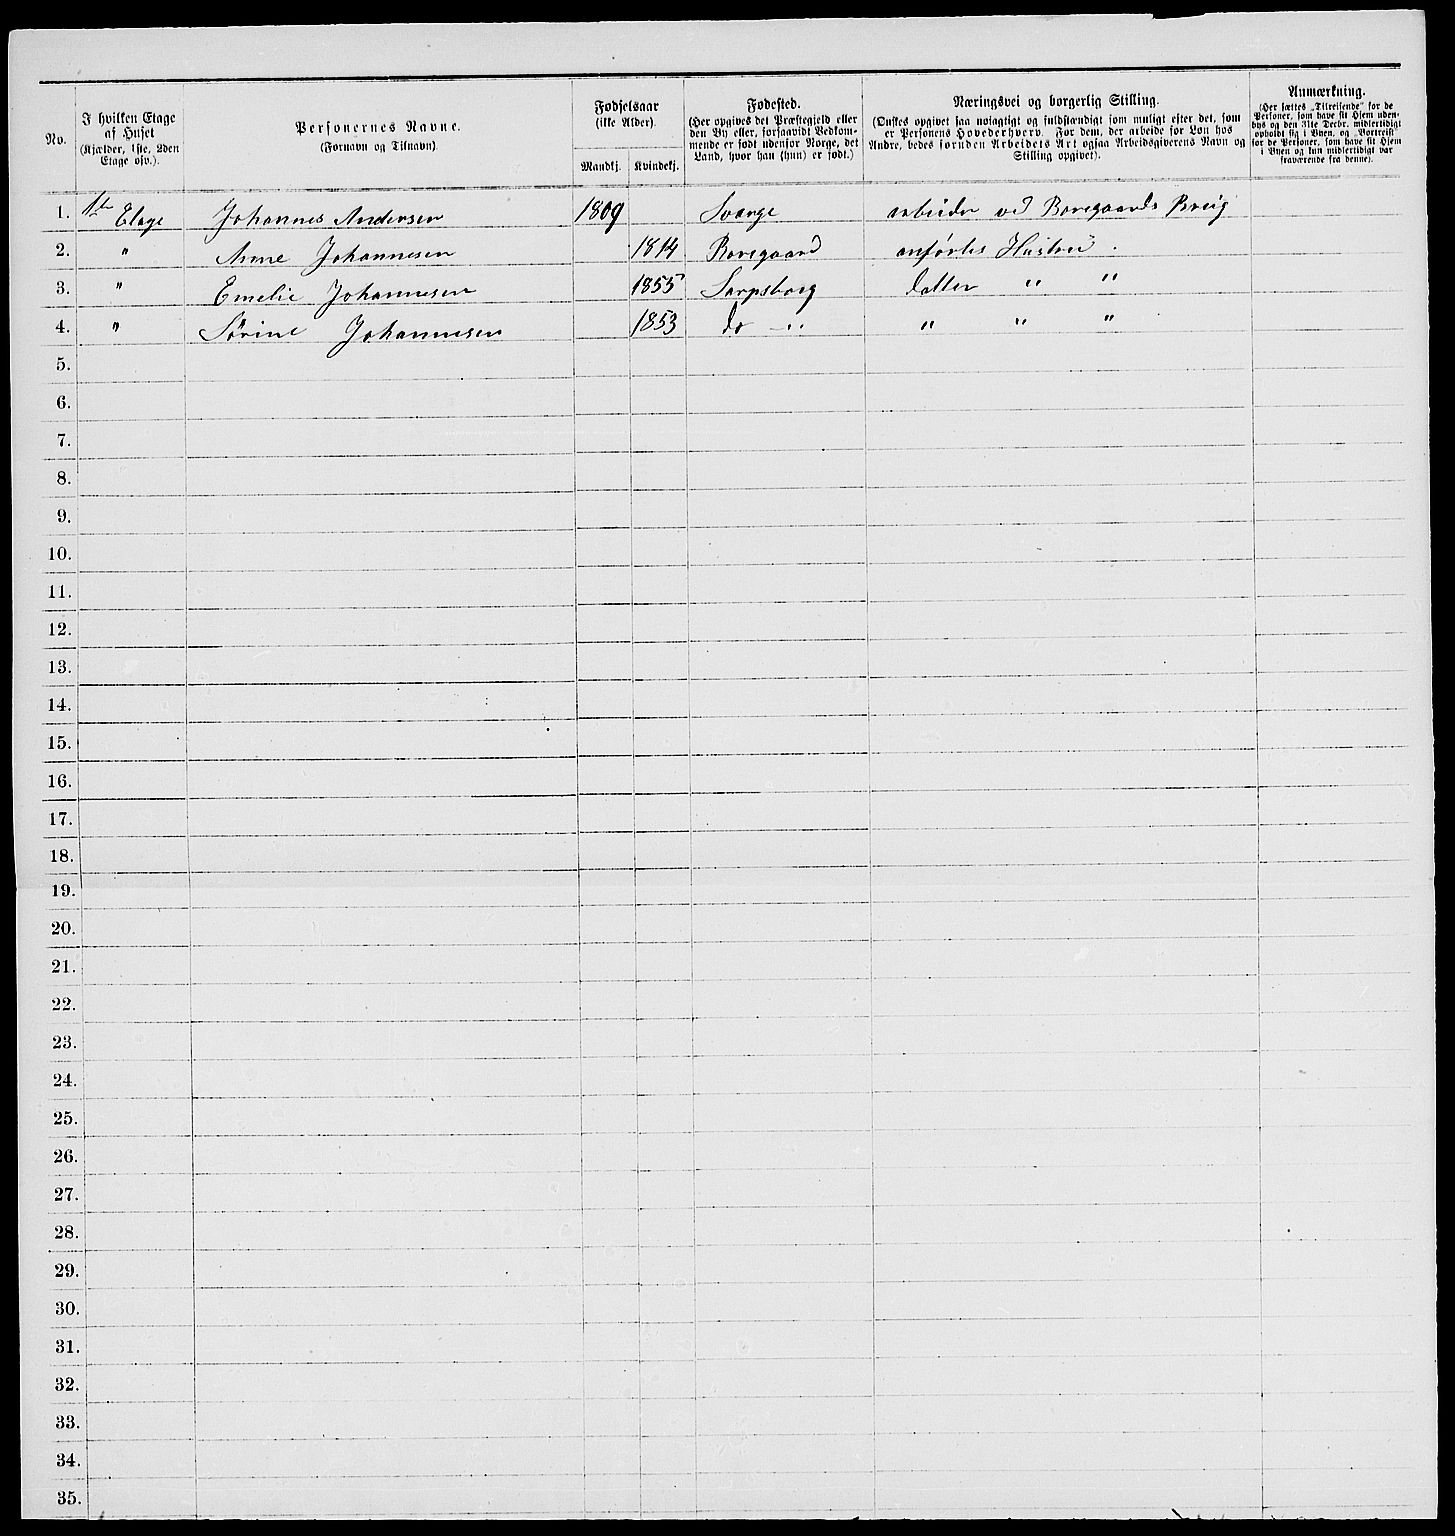 No.
I hvilken Etage
af Huset
(Kjælder, 1ste, 2den
Etage osv.).
Personernes Navne.
(Fornavn og Tilnavn)
Fødselsaar
(ikke Alder).
Mandkj.
Kvindekj.
Fødested.
(Her opgives det Præstegjeld eller
den By eller, forsaavidt Vedkom-
mende er født udenfor Norge, det
Land, hvor han (hun) er født.)
Næringsvei og borgerlig Stilling.
(Ønskes opgivet saa nøiagtigt og fuldstændigt som muligt efter det, som
er Personens Hovederhverv. For dem, der arbeide for Løn hos
Andre, bedes foruden Arbeidets Art ogsaa Arbeidsgiverens Navn og
Stilling opgivet).
Anmærkning.
(Her sættes „Tilreisende“ for de
Personer, som have sit Hjem uden-
bys og den 31te Decbr. midlertidigt
opholdt sig i Byen, og „Bortreist“
for de Personer, som have sit Hjem
i Byen og kun midlertidigt var
fraværende fra denne).
1. 1ste Etage Johannes Andersen 1809 arbeider ved Boregaards Brug
2. " Anne Johannesen 1814 Boregaard anførtes Hustru
3. " Emelie Johannesen 1855 Sarpsborg datter " "
4. " Sørine Johannesen 1853 do " " " "
5.
6.
7.
8.
9.
10.
11.
12.
13.
14.
15.
16.
17.
18.
19.
20.
21.
22.
23.
24.
25.
26.
27.
28.
29.
30.
31.
32.
33.
34.
35.